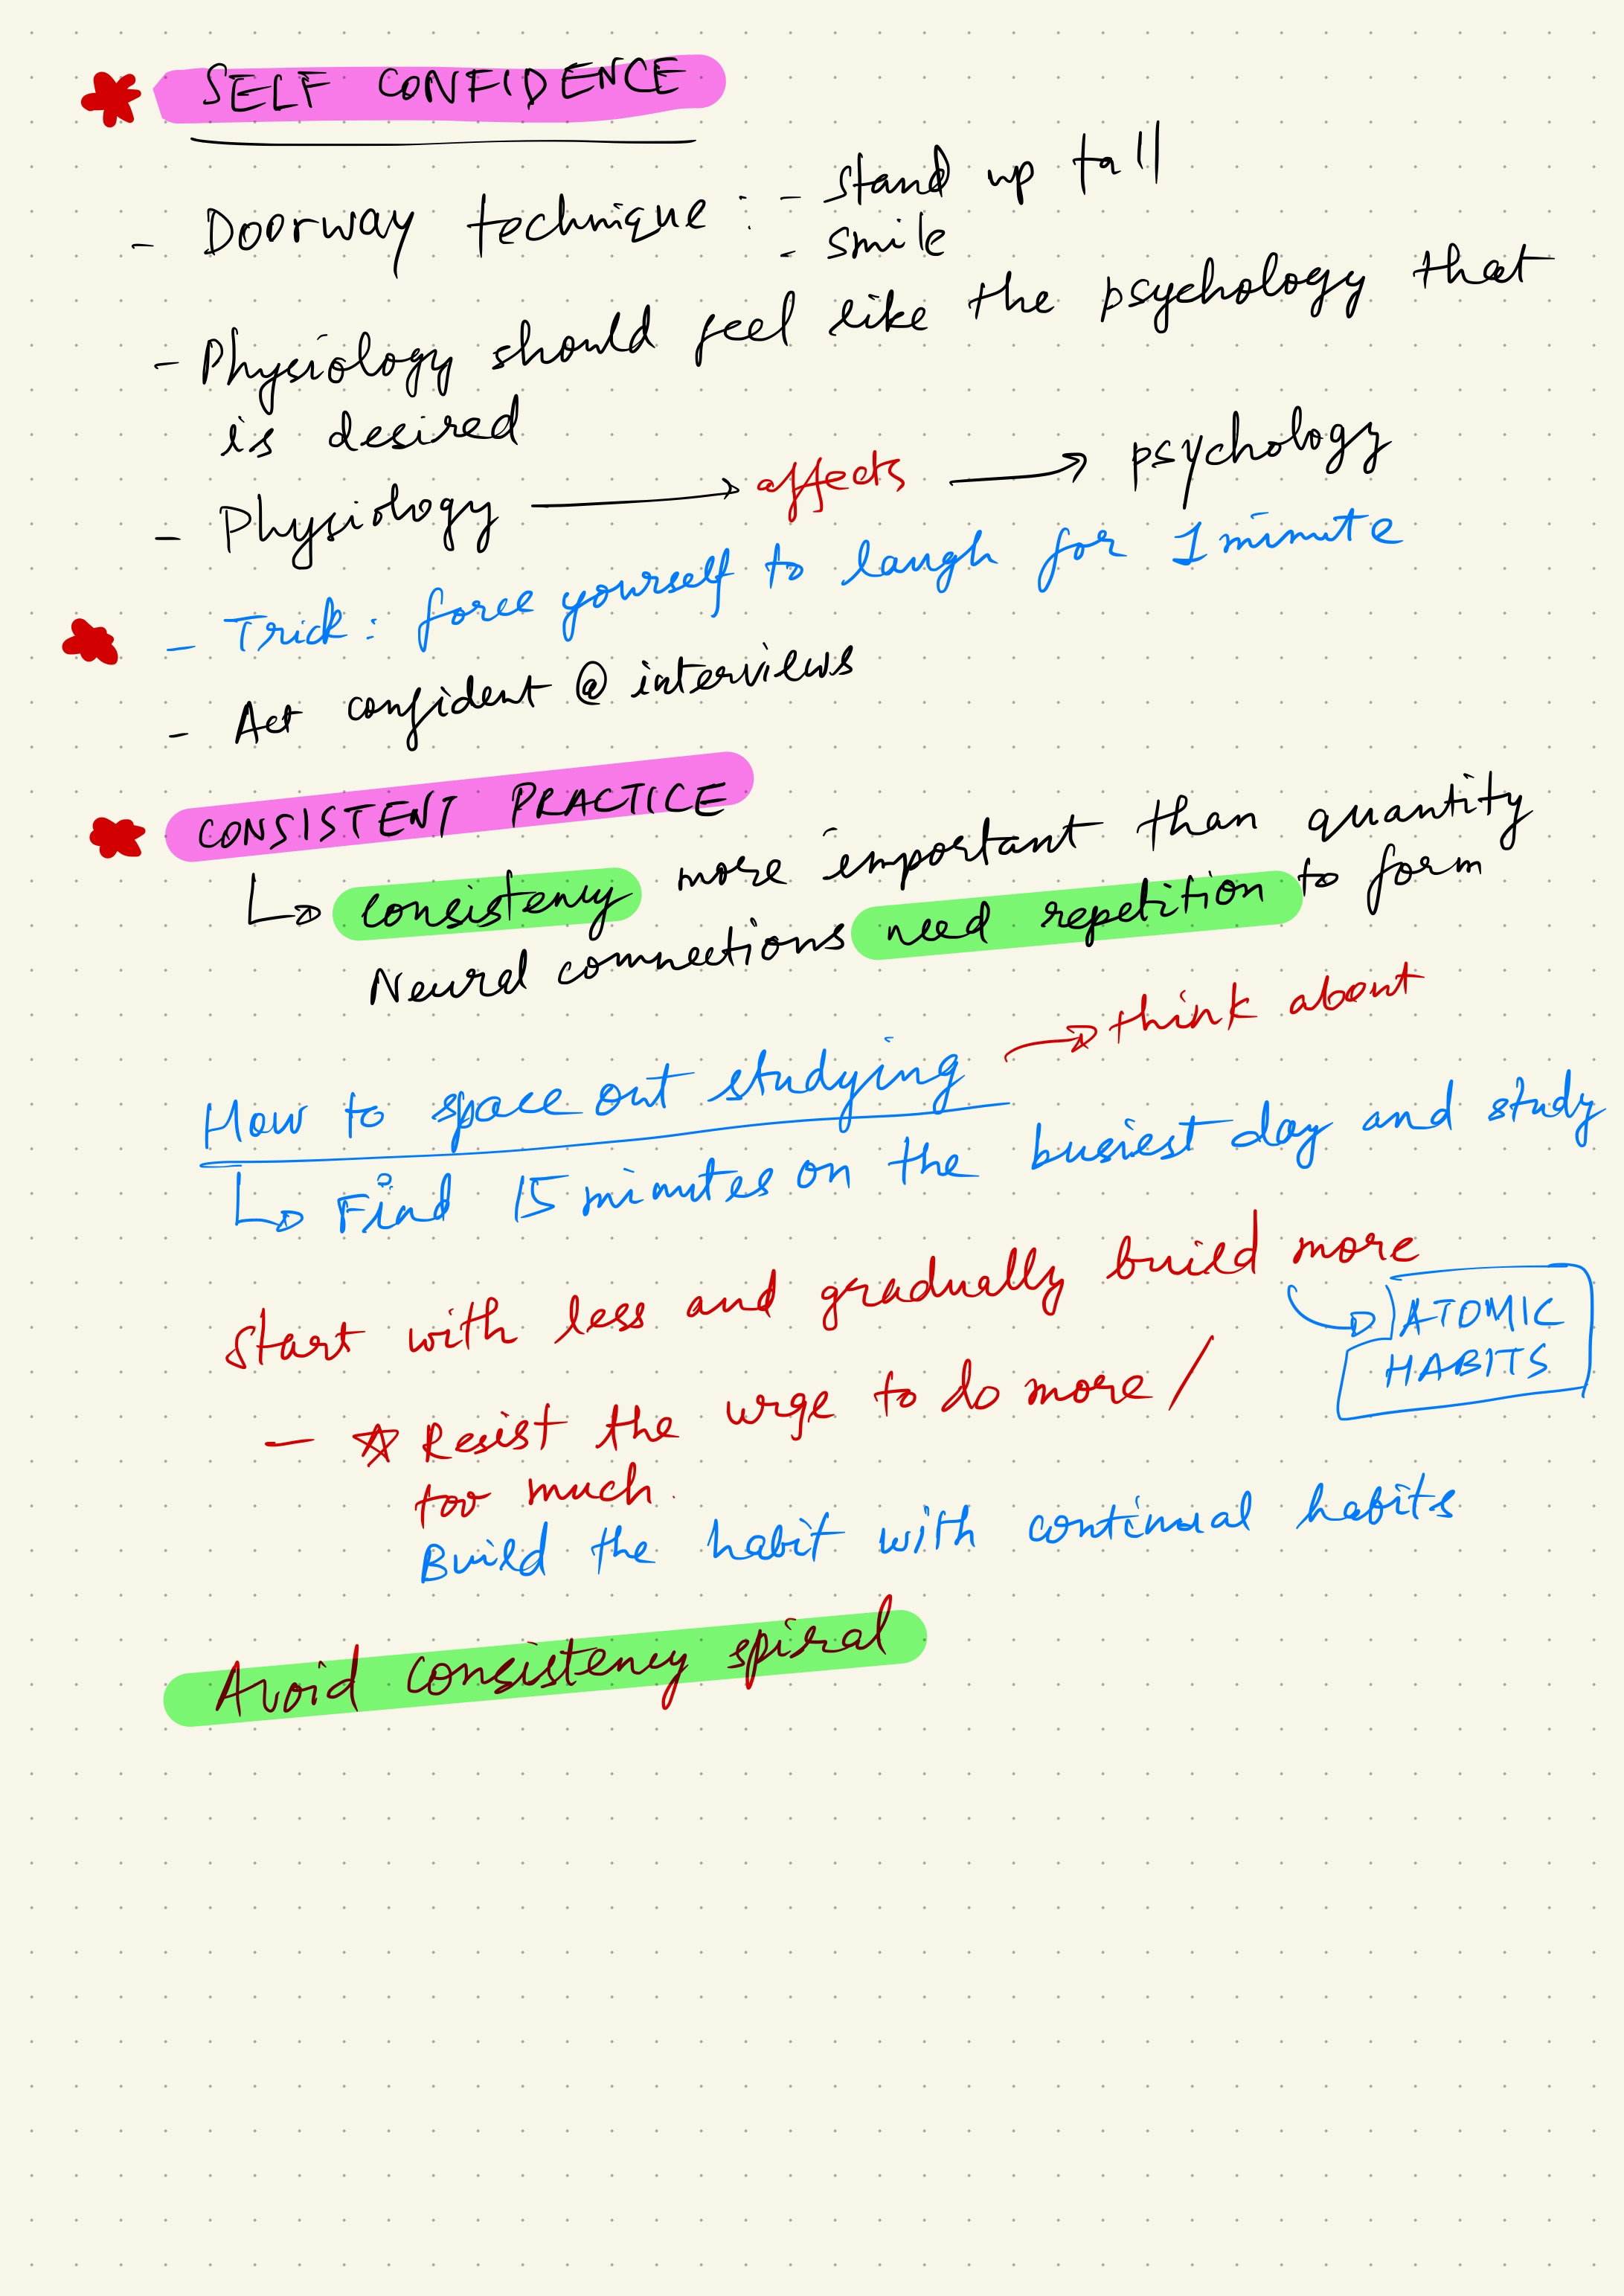 SELF CONFIDENCE
- Doorway technique : - stand up tall
- smile
- Physiology should feel like the psychology that
is desired
- Physiology → affects → psychology
- Trick : force yourself to laugh for 1 minute
- Act confident @ interviews
CONSISTENT PRACTICE
↳ consistency more important than quantity
Neural connections need repetition to form
How to space out studying → think about
↳ Find 15 minutes on the busiest day and study
Start with less and gradually build more
→ ATOMIC
HABITS
- ☆ Resist the urge to do more /
too much.
Build the habit with continual habits
Avoid consistency spiral